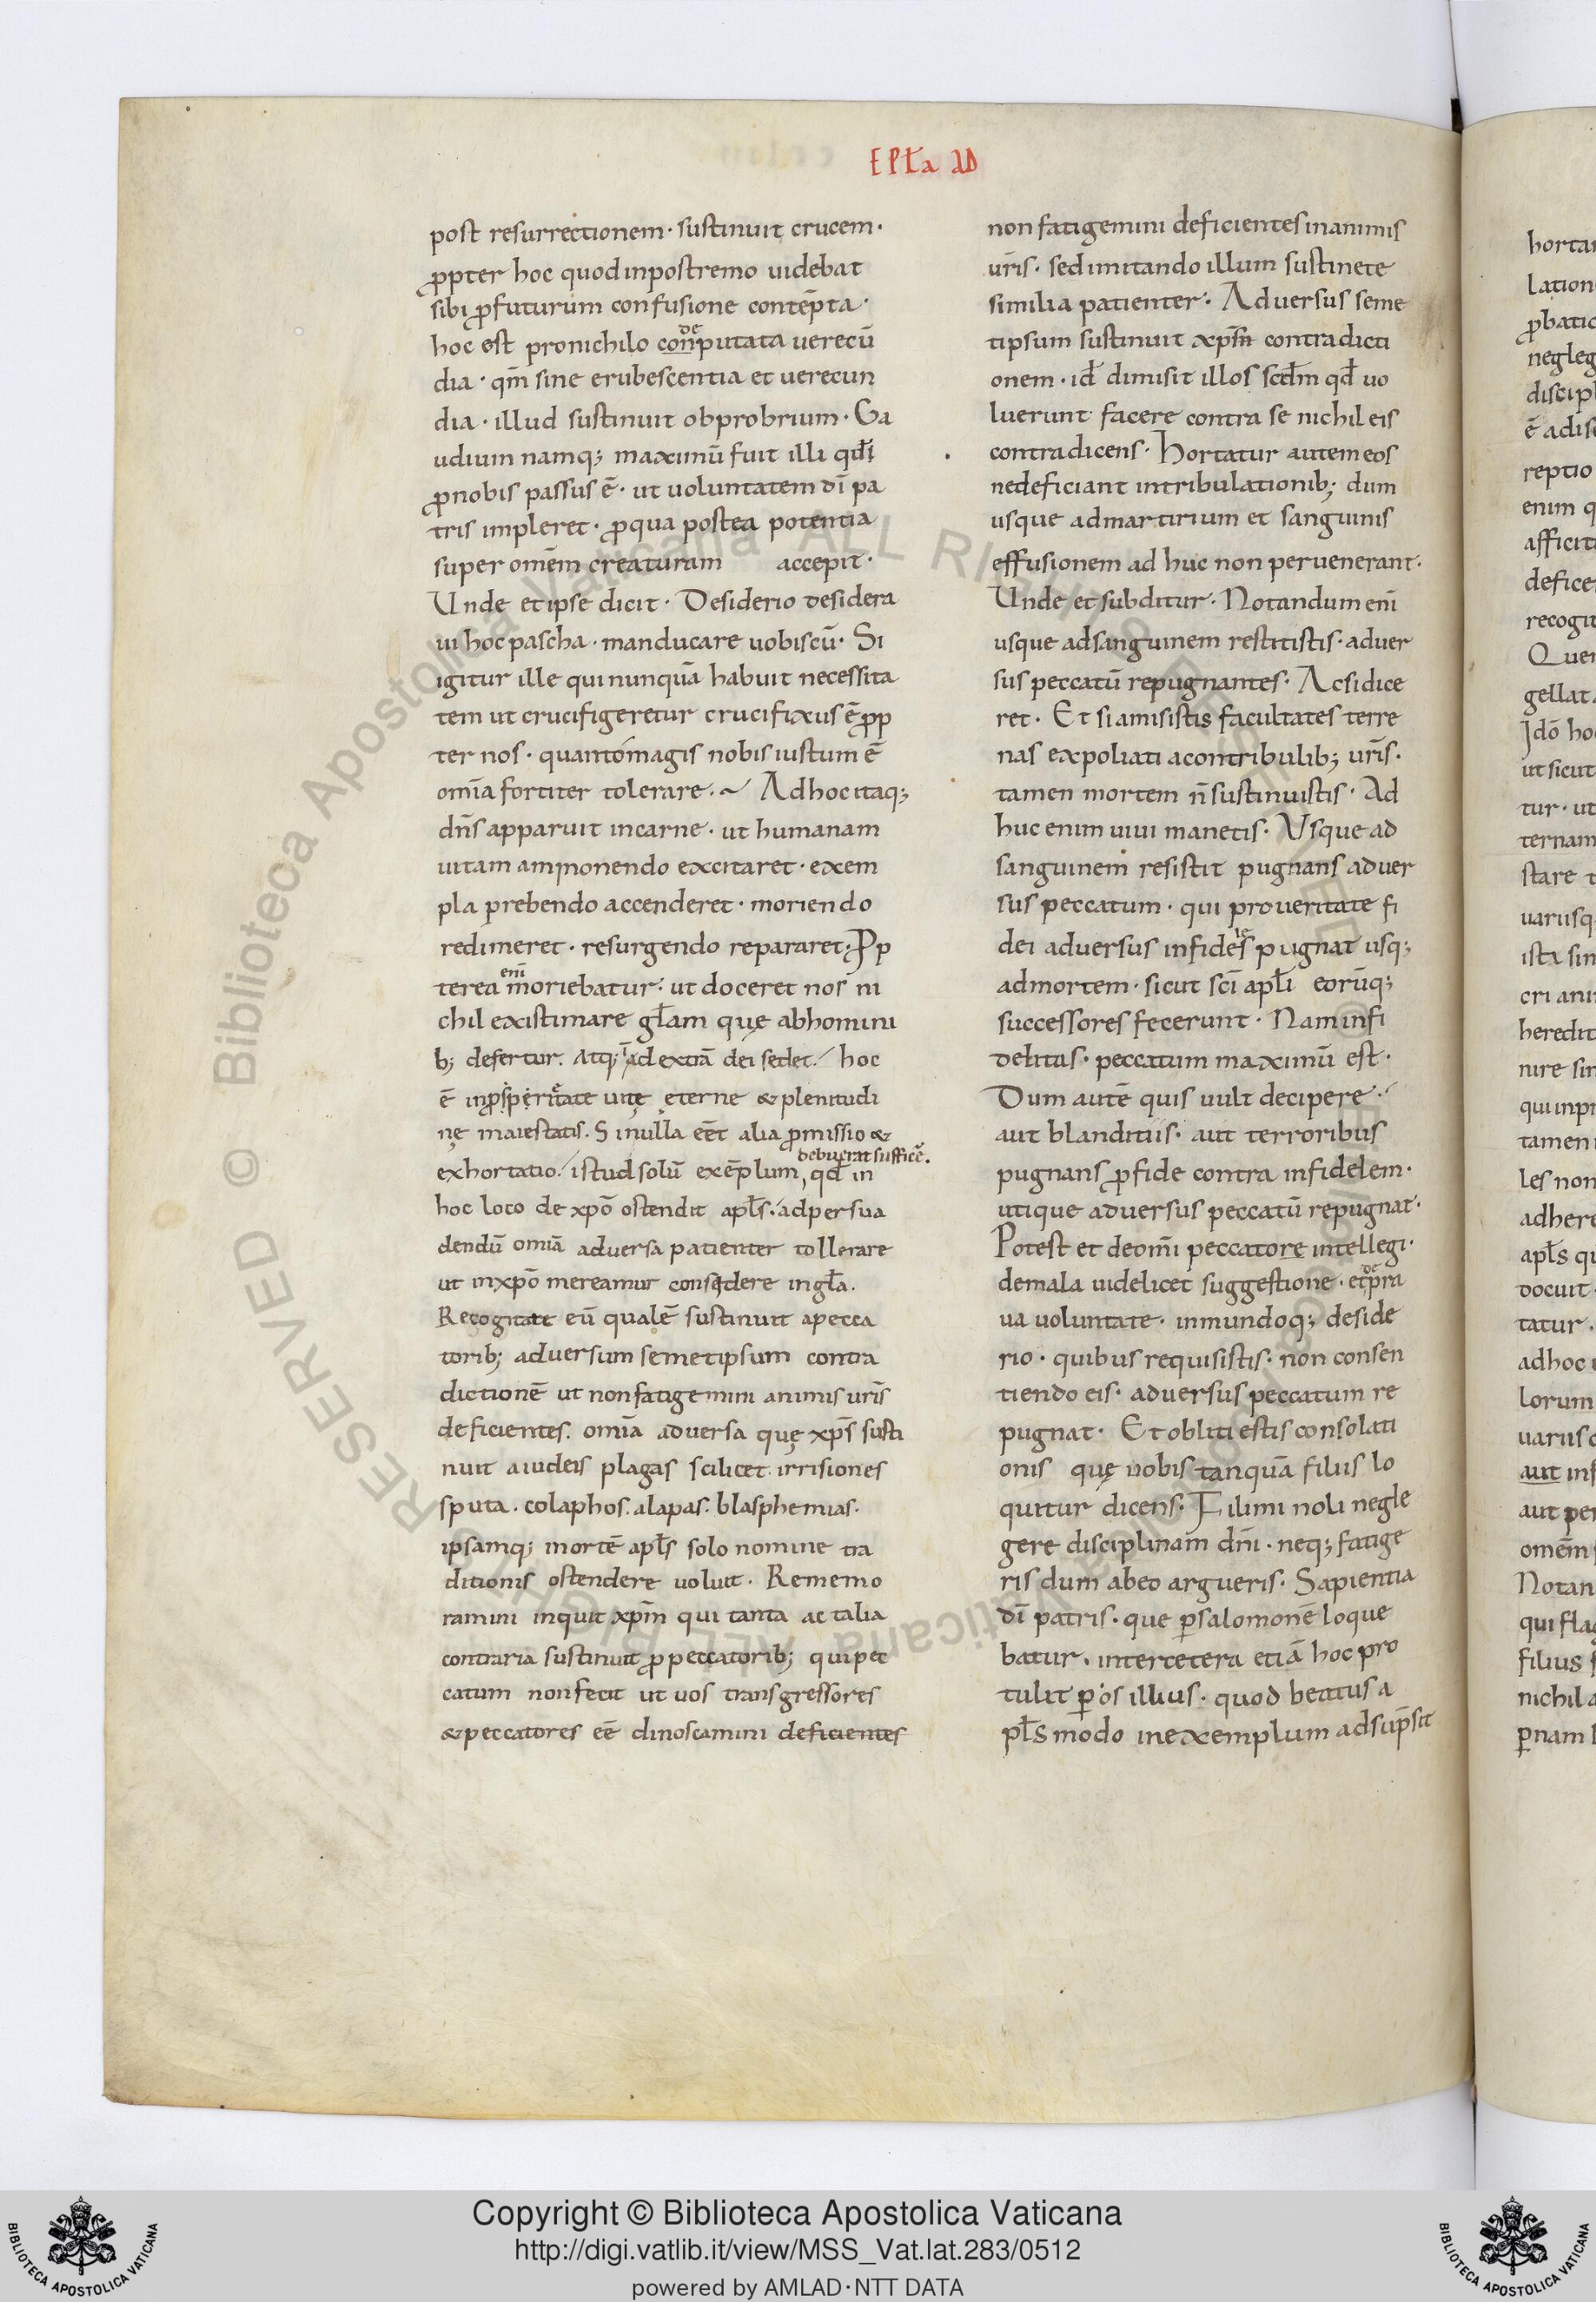 EPŁa AD
post resurrectionem · sustinuit crucem ·
ꝓpter hoc quod inpostremo uidebat
sibi ꝓfuturum confusione contēpta ·
hoc est pronichilo conputata uerecū
de
dia · qm̄ sine erubescentia et uerecun
dia · illud sustinuit obprobrium · Ga
udium namq; maximū fuit illi qđ
ꝓnobis passus ē · ut uoluntatem dī pa
tris impleret · ꝓqua postea potentia
super omēm creaturam accepit ·
Unde et ipse dicit · Desiderio desidera
ui hoc pascha · manducare uobiscū · Si
igitur ille qui nunquā habuit necessita
tem ut crucifigeretur crucifixus ē ꝓp
ter nos · quantomagis nobis iustum ē
omīa fortiter tolerare · ~ Adhoc itaq;
dn̄s apparuit incarne · ut humanam
uitam ammonendo excitaret · exem
pla prebendo accenderet · moriendo
redimeret · resurgendo repararet · Pp
enī
terea moriebatur · ut doceret nos ni
chil existimare gła̅m quę abhomini
b; defertur. Atq; ad extrā dei sedet. hoc
ē inꝓsperitate uitę eterne & plenitudi
nę maiestatis. Si nulla eēt alia ꝓmissio &
debuerat sufficē.
exhortatio. istud solū exēplum, qđ in
hoc loco de xpō ostendit apłs. ad persua
dendū omīa aduersa patienter tollerare
ut inxpō mereamur considere in gła.
Recogitate eū qualē sustinuit apecca
torib; aduersum semetipsum contra
dictionē ut non fatigemini animis ur̄is
deficientes. omīa aduersa quę xp̄s susti
nuit a iudeis plagas scilicet irrisiones
sputa. colaphos. alapas. blasphemias.
ipsamq; mortē apłs solo nomine tra
ditionis ostendere uoluit. Rememo
ramini inquit xpm̄ qui tanta ac talia
contraria sustinuit ꝓ peccatorib; qui pec
catum non fecit ut uos transgressores
& peccatores eē dinoscamini deficientes
non fatigemini deficientes inanimis
ur̄is · sed imitando illum sustinete
similia patienter · Aduersus seme
tipsum sustinuit xpm̄ contradicti
onem · iđ dimisit illos scđm qđ uo
luerunt facere contra se nichil eis
contradicens · Hortatur autem eos
ne deficiant intribulationib; dum
usque admartirium et sanguinis
effusionem ad huc non peruenerant ·
Unde et subditur · Notandum enī
usque adsanguinem restitistis · aduer
sus peccatū repugnantes · Acsi dice
ret · Et si amisistis facultates terre
nas expoliati acontribulib; ur̄is ·
tamen mortem n̄ sustinuistis · Ad
huc enim uiui manetis · Usque ad
sanguinem resistit pugnans aduer
sus peccatum · qui proueritate fi
le
dei aduersus infides pugnat usq;
admortem · sicut scī apłi eorūq;
successores fecerunt · Nam infi
delitas · peccatum maximū est ·
Dum autē quis uult decipere ·
aut blanditiis · aut terroribus
pugnans ꝓfide contra infidelem ·
utique aduersus peccatū repugnat ·
Potest et deom̄i peccatore intellegi ·
de
demala uidelicet suggestione · et pra
ua uoluntate · inmundoq; deside
rio · quibus requisistis · non consen
tiendo eis · aduersus peccatum re
pugnat · Et obliti estis consolati
onis quę uobis tanquā filiis lo
quitur dicens · Fili mi noli negle
gere disciplinam dn̄i · neq; fatige
ris dum abeo argueris · Sapientia
dī patris · que ꝑ salomonē loque
batur · inter cetera etiā hoc pro
tulit ꝑ os illius · quod beatus a
płs modo inexemplum adsūpsit
horta
Lation
ꝓbatic
negleg
discipl
ē adisc
reptio
enim q
afficit
defice
recogit
Quer
gellat
Idō ho
ut sicut
tur · ut
ternam
stare
uariisq
ista sin
cri ani
heredit
nire sin
qui inpr
tamen
les non
adhere
apłs qu
docuit
tatur ·
adhoc
lorum
uariis
aut inf
aut per
omēm
Notan
qui flag
filius
nichil
ꝑnam
© Biblioteca Apostolica Vaticana ALL RIGHTS RESERVED
Copyright © Biblioteca Apostolica Vaticana
http://digi.vatlib.it/view/MSS_Vat.lat.283/0512
powered by AMLAD·NTT DATA
BIBLIOTECA APOSTOLICA VATICANA
BIBLIOTECA APOSTOLICA VATICANA